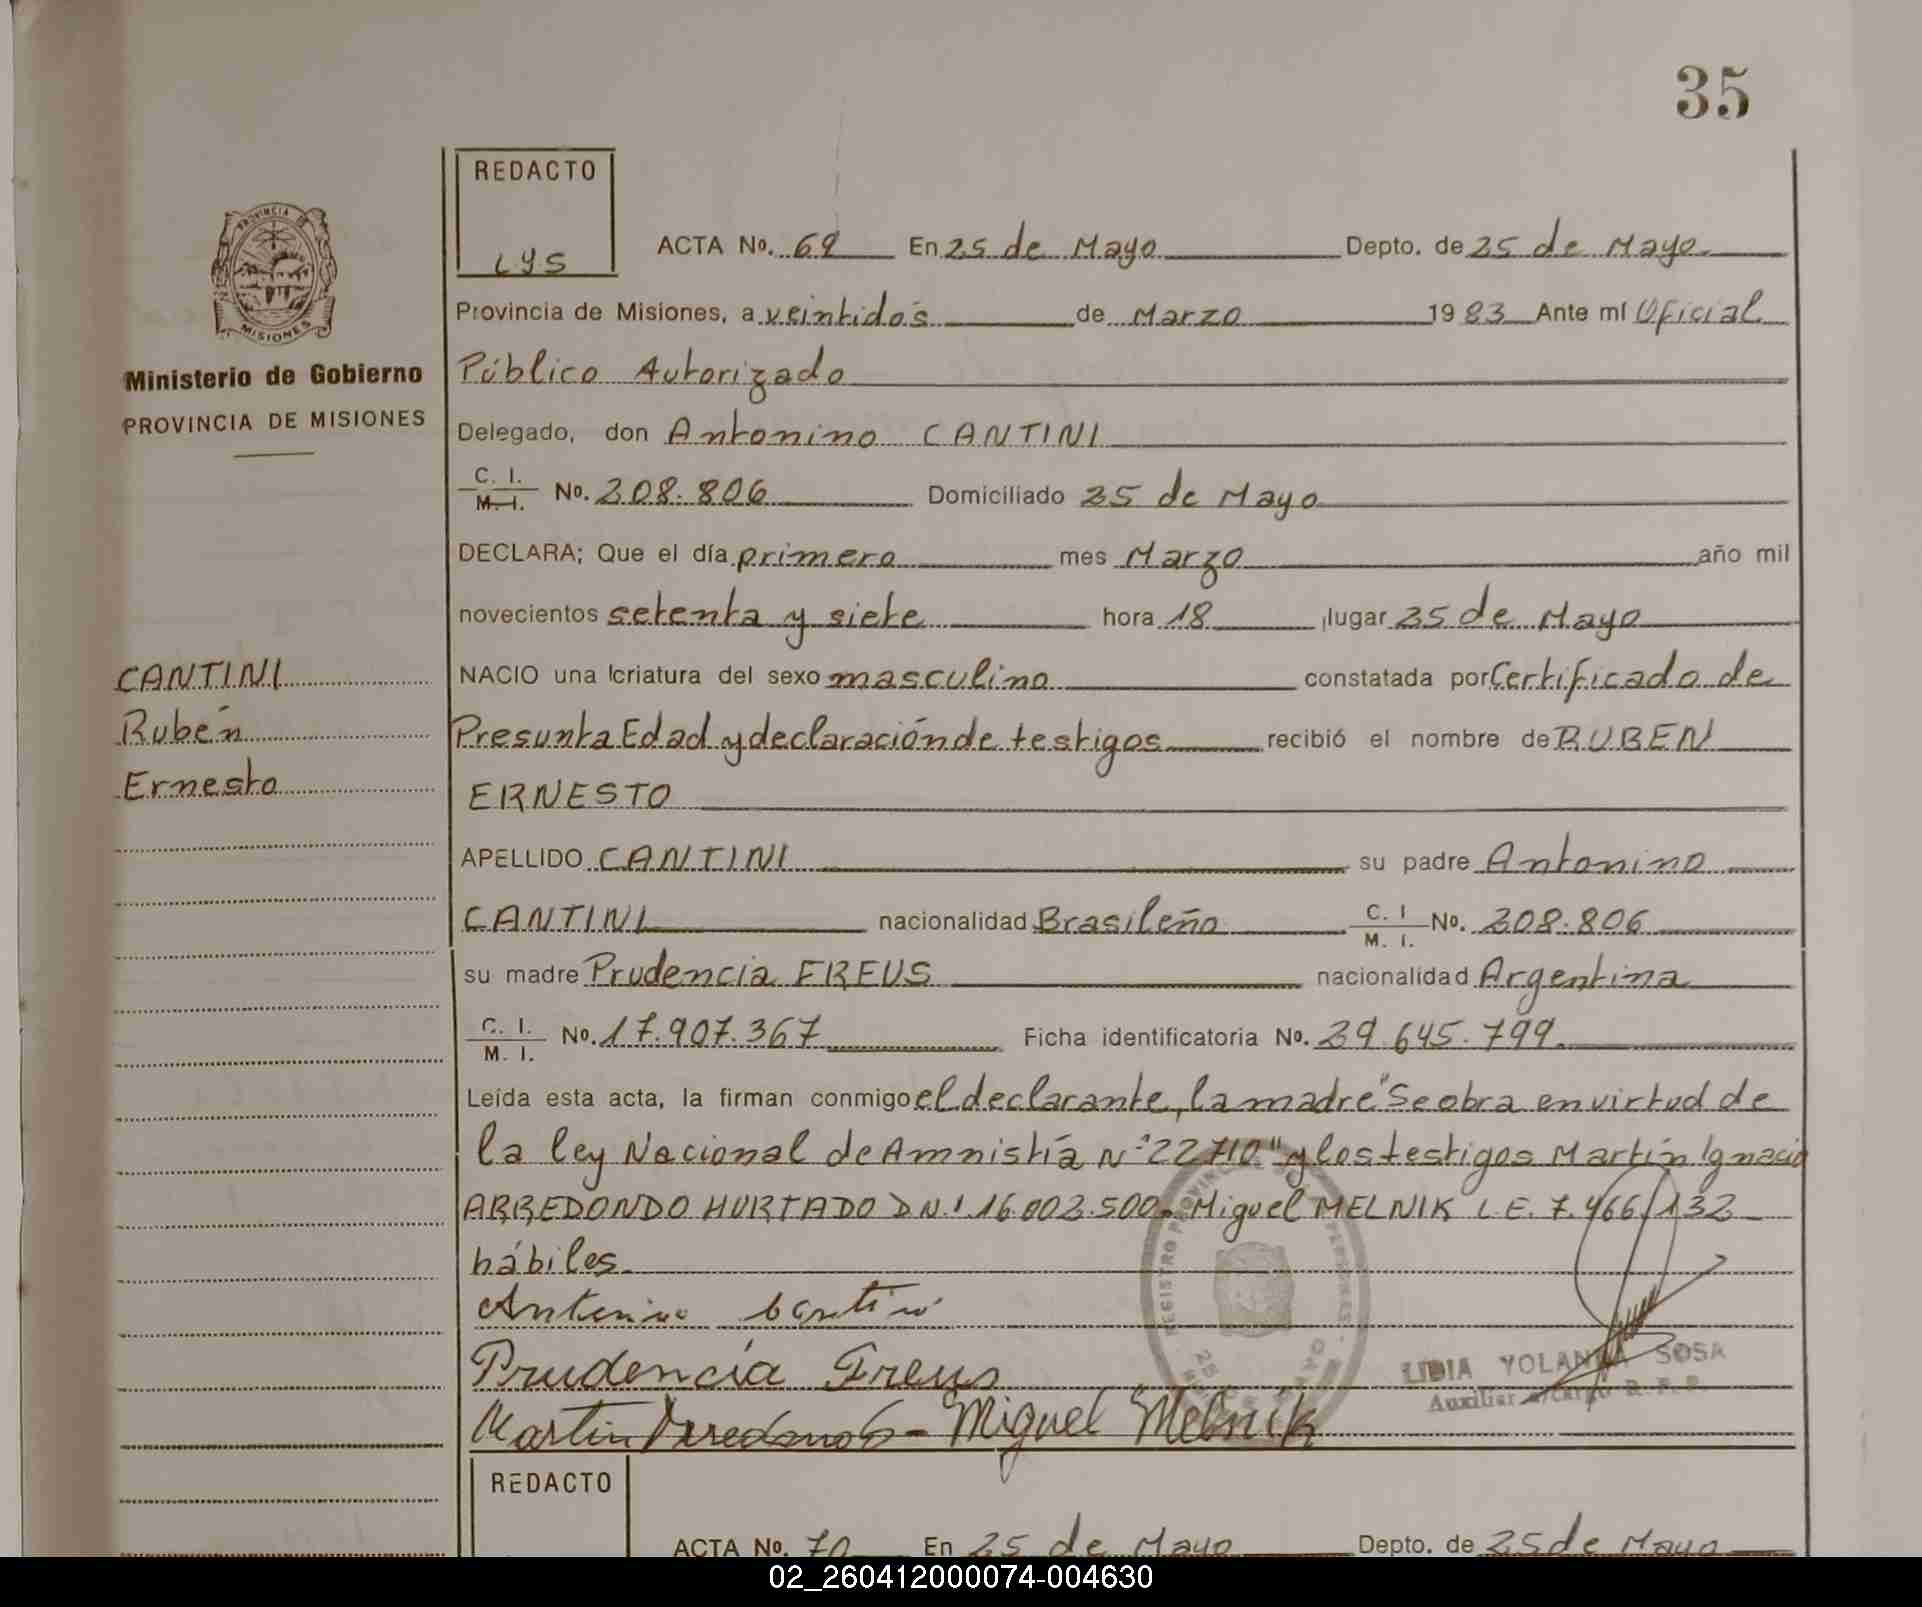 35
REDACTO
LYS
ACTA No. 69 En 25 de Mayo Depto. de 25 de Mayo
Provincia de Misiones, a veintidós de Marzo 1983 Ante mí Oficial
Público Autorizado
Delegado, don Antonino CANTINI
C. I. / M. I. No. 208.806 Domiciliado 25 de Mayo
DECLARA; Que el día primero mes Marzo año mil
novecientos setenta y siete hora 18 lugar 25 de Mayo
NACIO una criatura del sexo masculino constatada por Certificado de
Presunta Edad y declaración de testigos recibió el nombre de RUBEN
ERNESTO
APELLIDO CANTINI su padre Antonino
CANTINI nacionalidad Brasileño C. I / M. I. No. 208.806
su madre Prudencia FREUS nacionalidad Argentina
C. I. / M. I. No. 17.907.367 Ficha identificatoria No. 29.645.799
Leída esta acta, la firman conmigo el declarante, la madre "Se obra en virtud de
la ley Nacional de Amnistía Nº 22710" y los testigos Martín Ignacio
ARREDONDO HURTADO D.N.I. 16.002.500- Miguel MELNIK L.E. 7.466.132
hábiles.
Antonino Cantini
Prudencia Freus
Martin Arredondo - Miguel Melnik
LIDIA YOLANDA SOSA
Auxiliar a/cargo R. P. P.
PROVINCIA DE
MISIONES
Ministerio de Gobierno
PROVINCIA DE MISIONES
CANTINI
Rubén
Ernesto
REDACTO
ACTA No. 70 En 25 de Mayo Depto. de 25 de Mayo
02_260412000074-004630